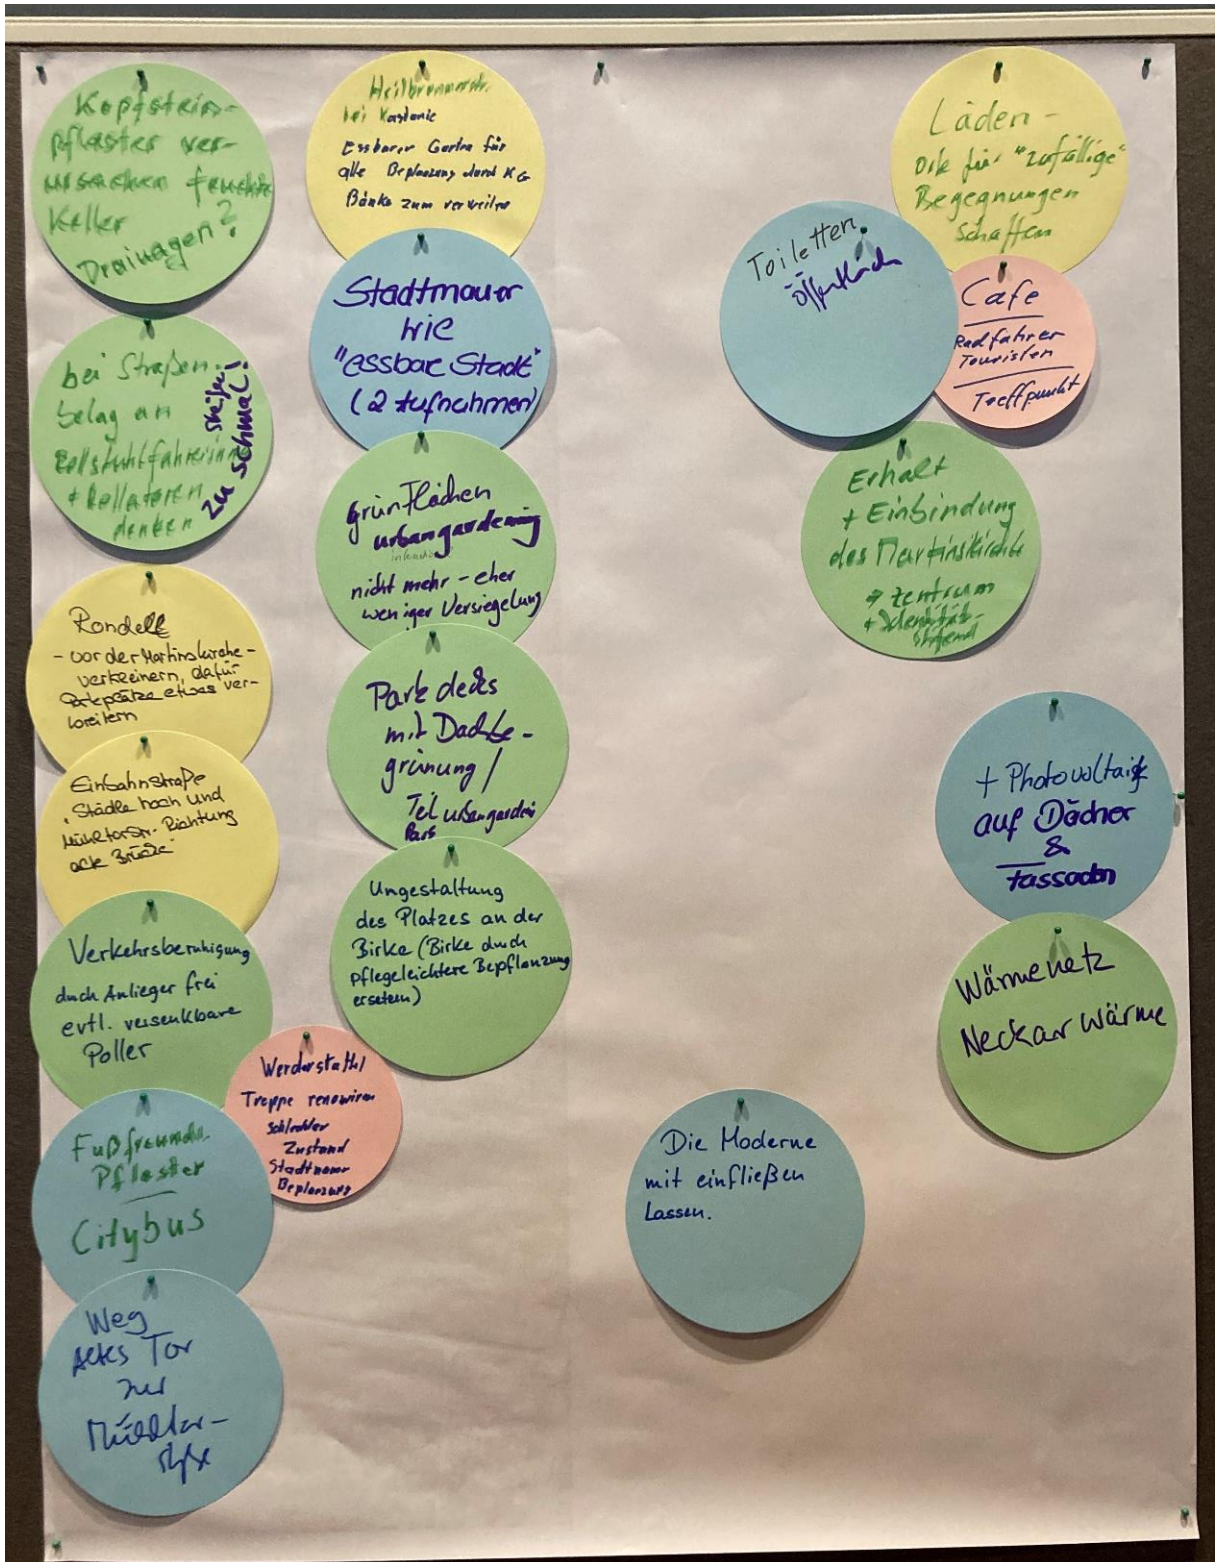 Kopfstein-
pflaster ver-
ursachen feuchte
Keller
Drainagen?
bei Straßen-
belag an
Rollstuhlfahrerinn
+ Rollatoren
denken
zu schmal!
Rondell
- vor der Martinskirche -
verkleinern, dafür
Parkplätze etwas ver-
breitern
Einbahnstraße
"Städle hoch und
Mühltorstr. Richtung
alte Brücke"
Verkehrsberuhigung
durch Anlieger frei
evtl. versenkbare
Poller
Fußfreundl.
Pflaster
Citybus
Weg
Altes Tor
zur
Mühltor-
straße
Heilbronnerstr.
bei Kastanie
Essbarer Garten für
alle Bepflanzung durch KG
Bänke zum verweilen
Stadtmauer
wie
"essbare Stadt"
(2 Aufnahmen)
Grünflächen
urbangardening
nicht mehr - eher
weniger Versiegelung
Parkdecks
mit Dachbe-
grünung /
Teil urbangarden
Park
Umgestaltung
des Platzes an der
Birke (Birke durch
pflegeleichtere Bepflanzung
ersetzen)
Treppe renovieren
schlechter
Zustand
Stadtmauer
Bepflanzung
Läden -
Orte für "zufällige"
Begegnungen
schaffen
Toiletten
öffentlich
Cafe
Radfahrer
Touristen
Treffpunkt
Erhalt
+ Einbindung
des Martinskirche
→ Zentrum
+ Identitäts-
stiftend
+ Photovoltaik
auf Dächer
&
Fassaden
Wärmenetz
Neckar Wärme
Die Moderne
mit einfließen
Lassen.